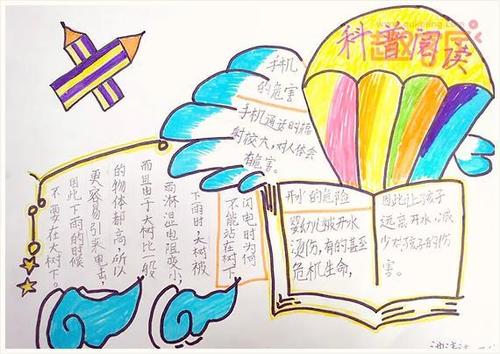 科普阅读
手机
的危害
手机通话时辐
射较大,对人体会
有危害。
闪电时为何
不能站在树下
下雨时,大树被
雨淋湿电阻变小,
而且由于大树比一般
的物体都高,所以
更容易引来电击,
因此下雨的时候
不要在大树下。
开水的危险
婴幼儿被开水
烫伤,有的甚至
危机生命,
因此让孩子
远离开水,减
少对孩子的伤
害。